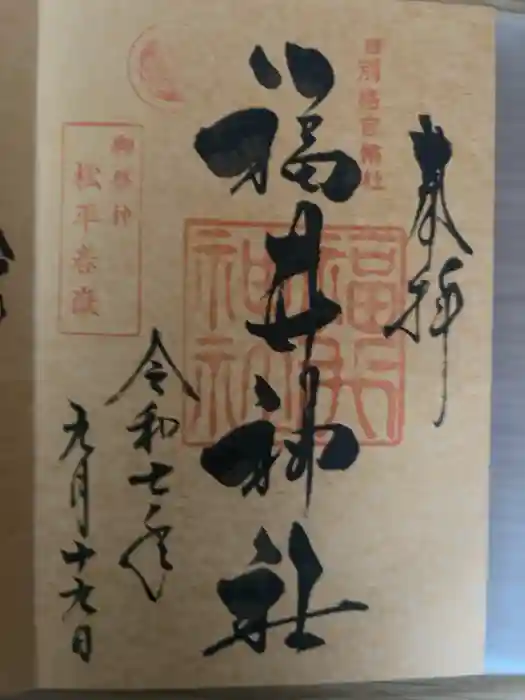 奉拝
旧別格官幣社
福井神社
福井神社
御祭神
松平春嶽
令和七年
九月十九日